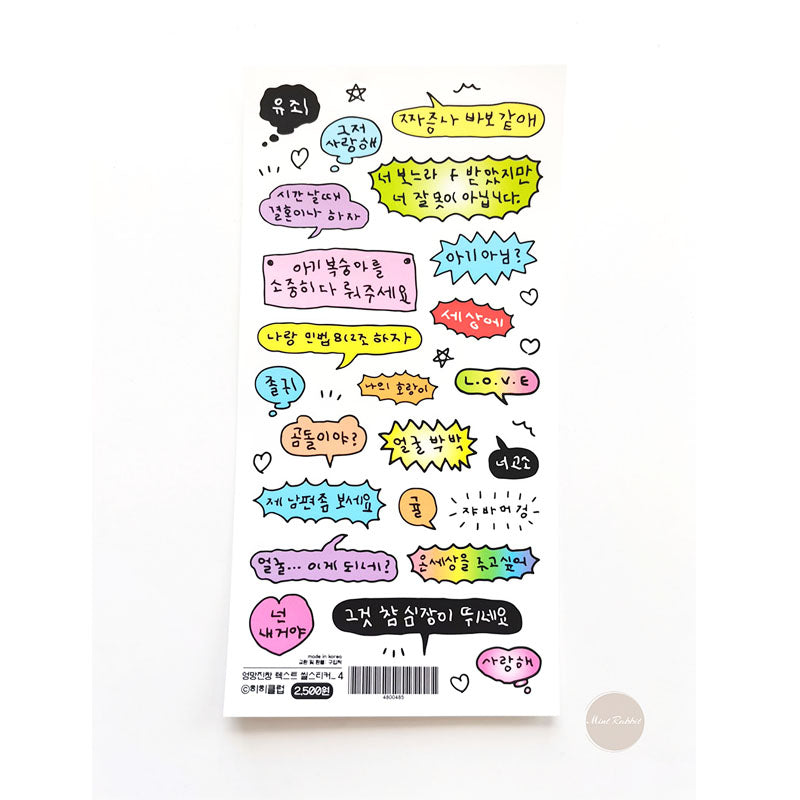 유죄
짜증나 바보같애
그저
사랑해
너 보느라 F 받았지만
너 잘못이 아닙니다.
시간 날때
결혼이나 하자
아기아님?
아기복숭아를
소중히 다뤄주세요
세상에
나랑 민법 812조 하자
졸귀
나의 호랑이
L.O.V.E
곰돌이야?
얼굴 박박
너고소
제 남편좀 보세요
귤
쟈바머겅
얼굴... 이게 되네?
온세상을 주고싶어
넌
내거야
그것 참 심장이 뛰네요
사랑해
made in korea
교환 및 환불 : 구입처
엉망진창 텍스트 씰스티커_ 4
©히히클럽 2,500원
4800485
Mint Rabbit